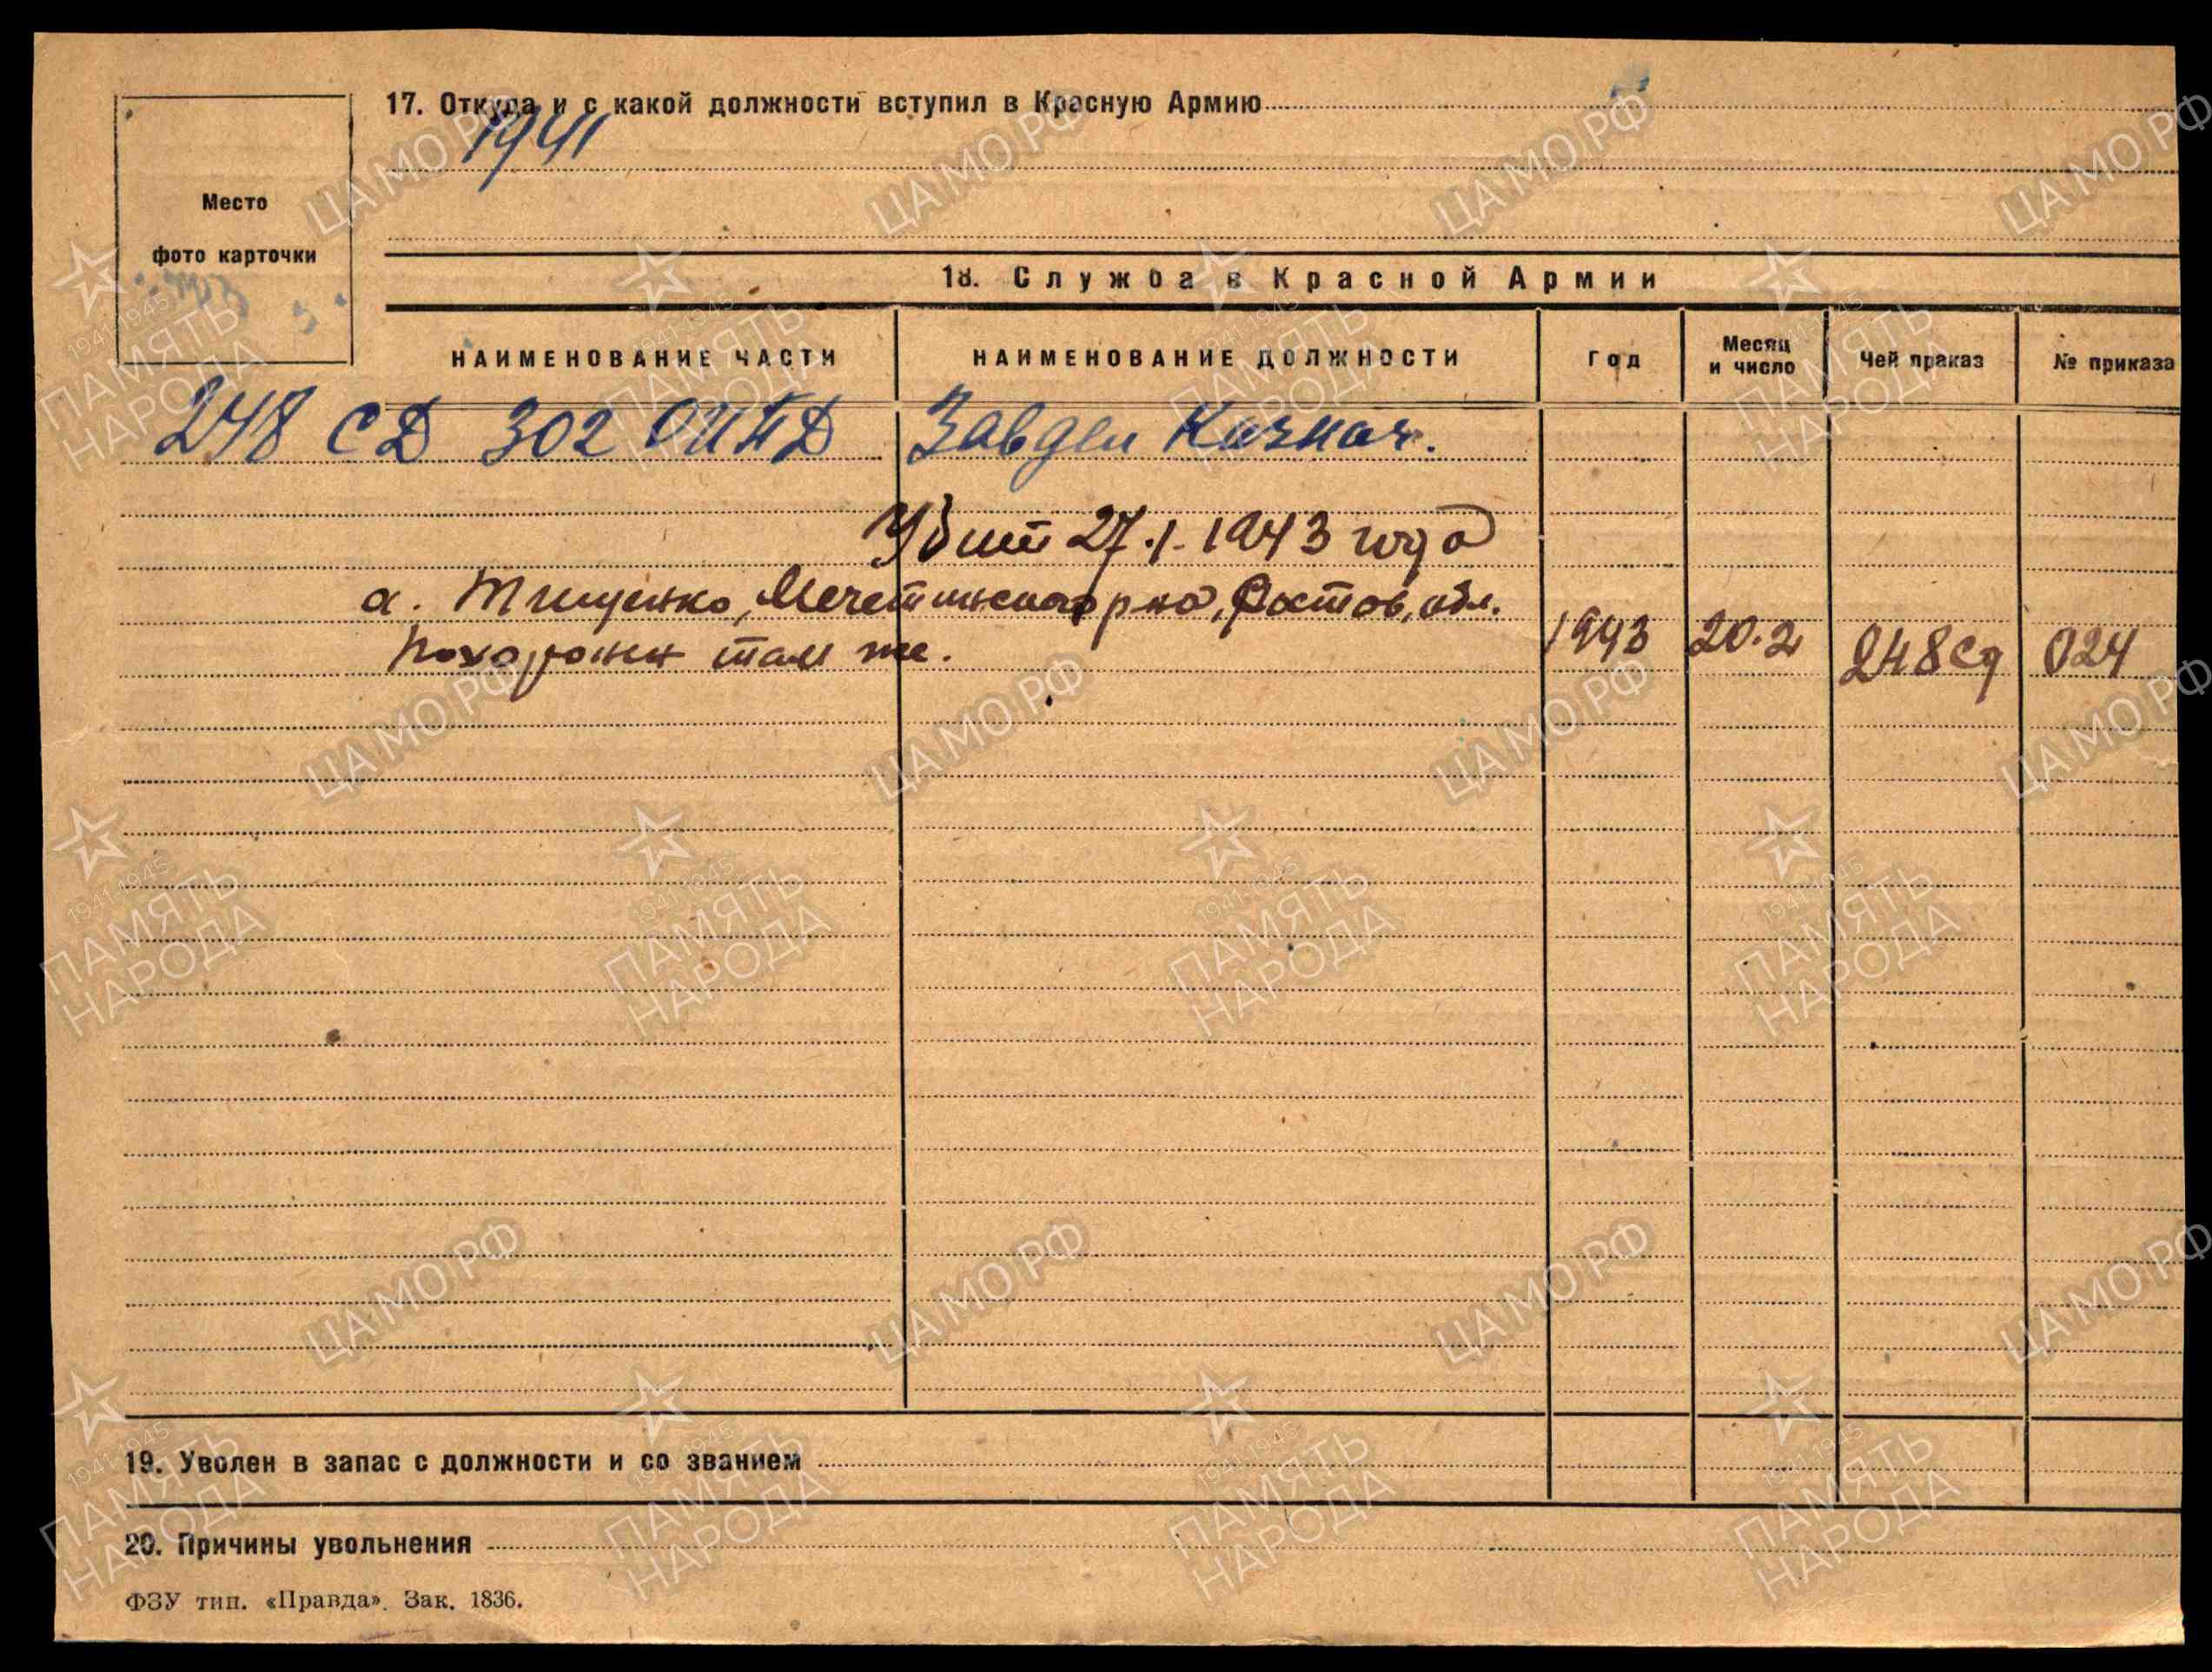 17. Откуда и с какой должности вступил в Красную Армию
1941
Место
фото карточки
18. Служба в Красной Армии
НАИМЕНОВАНИЕ ЧАСТИ
НАИМЕНОВАНИЕ ДОЛЖНОСТИ
Год
Месяц
и число
Чей праказ
№ приказа
248 СД 302 ОИПД Завдел Казнач.
Убит 27.1.1943 года
х. Тищенко, Мечетинского р-на, Ростов. обл.
Похоронен там же. 1943 20.2 248сд 024
19. Уволен в запас с должности и со званием
20. Причины увольнения
ФЗУ тип. «Правда». Зак. 1836.
ЦАМО.РФ
1941-1945
ПАМЯТЬ
НАРОДА